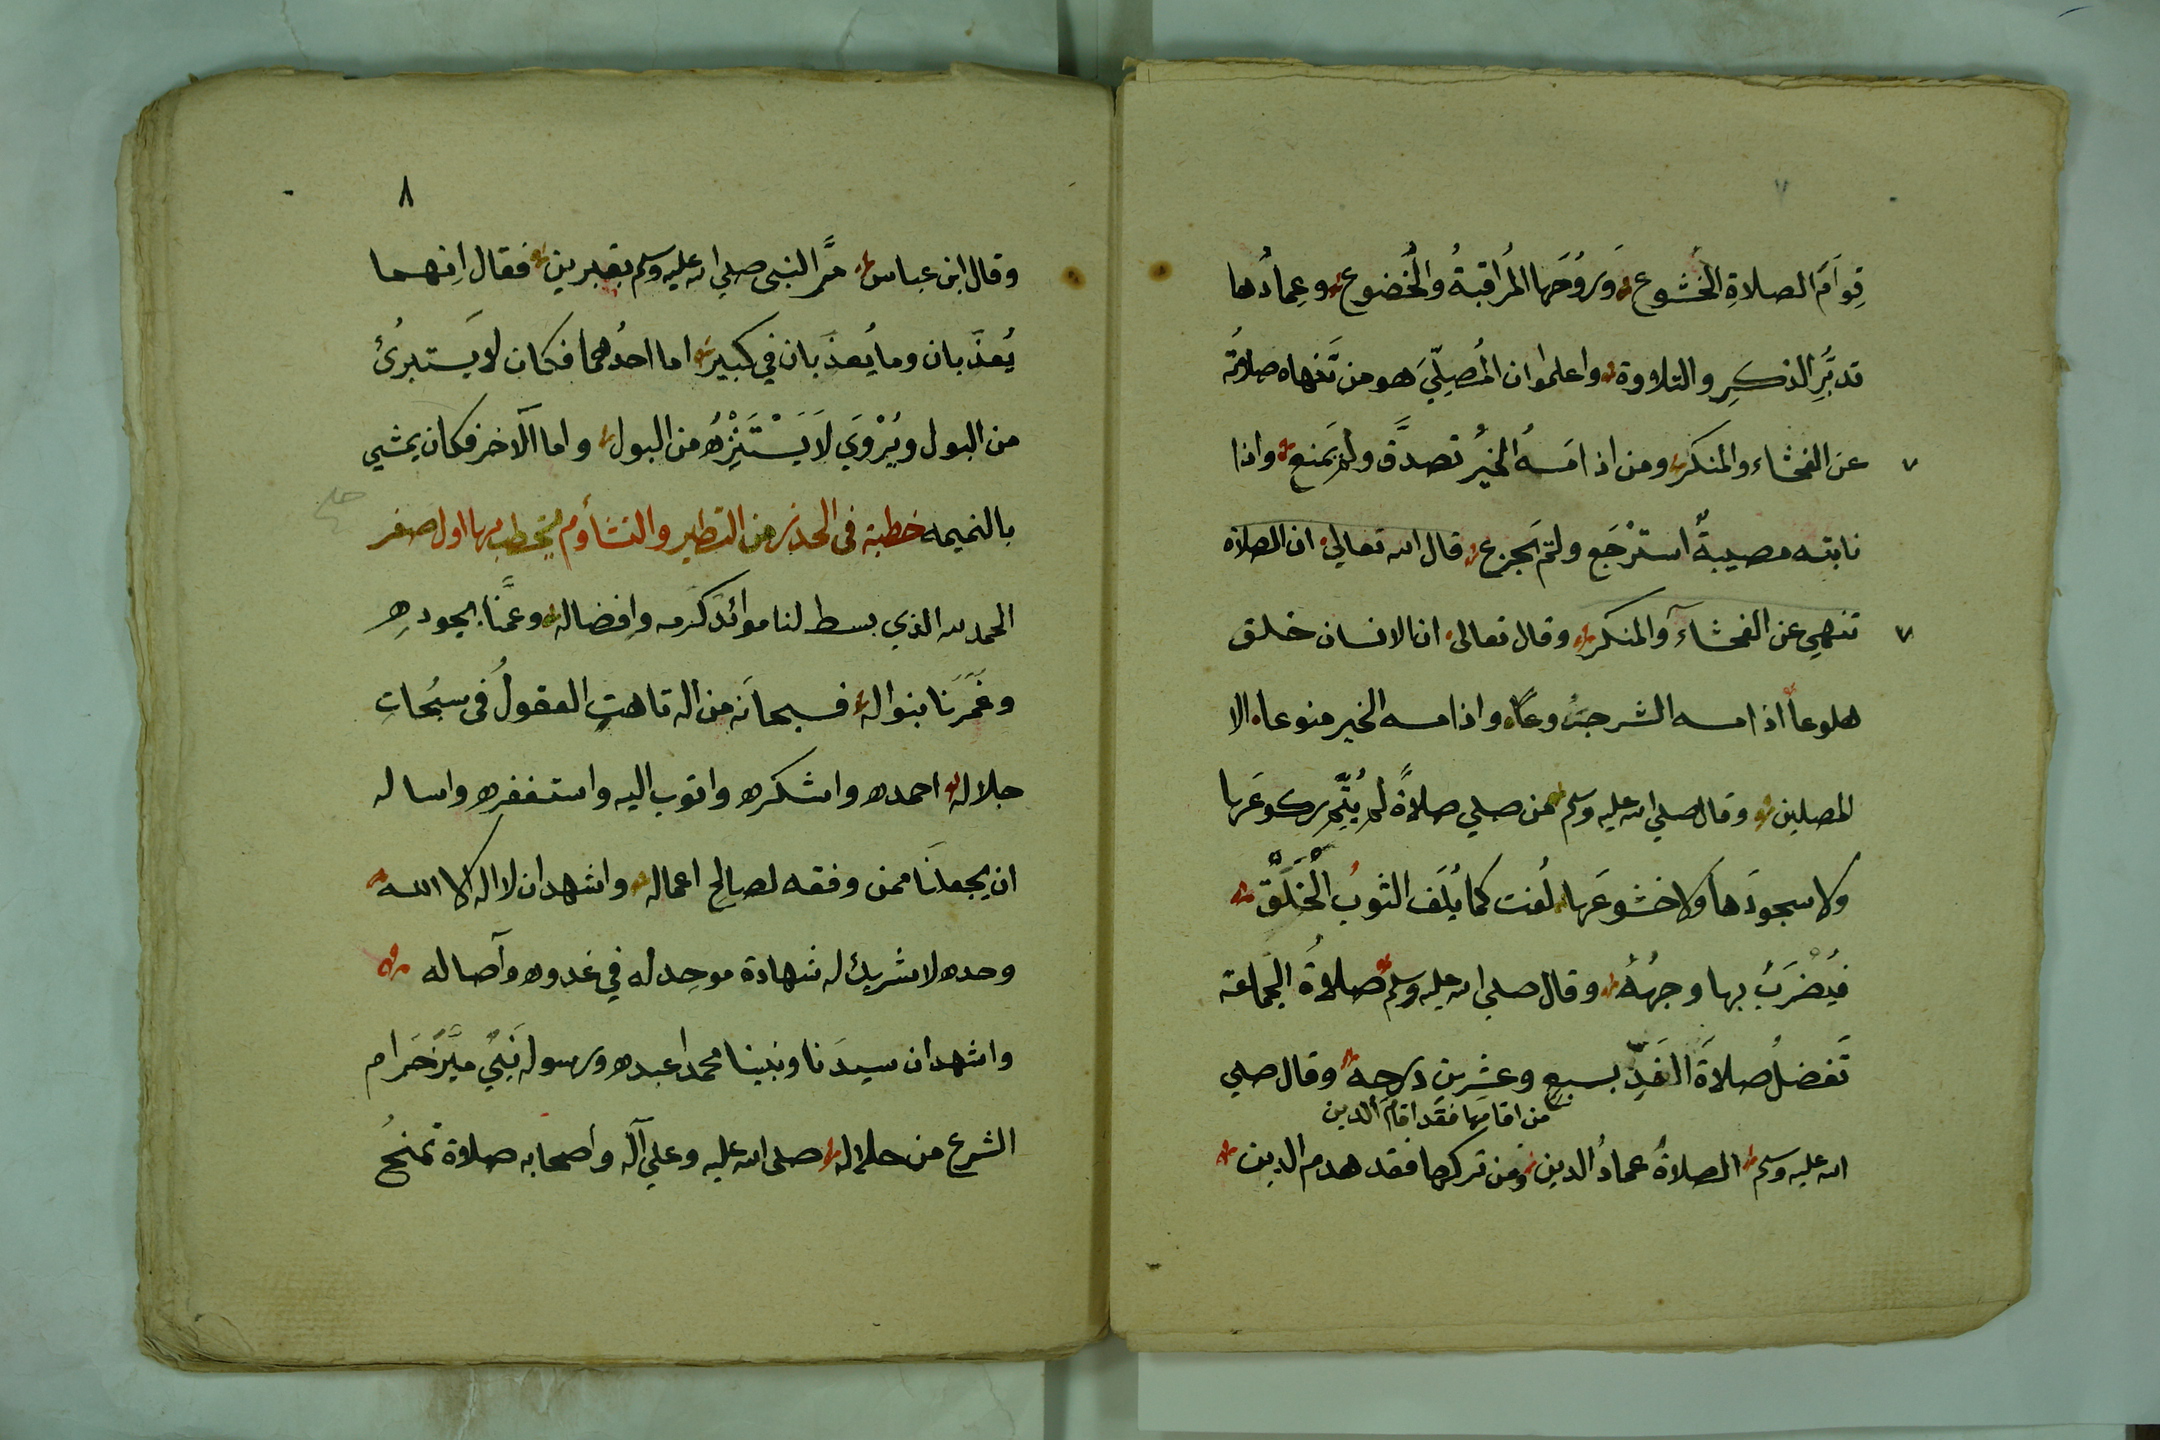 ٧
قِوَامَ الصلاةِ الخُشوع وَرُوُحَها المُراقبةُ والخُضوع وعِمادُها
تدبُّرِ الذكرِ والتلاوة واعلموا ان المُصلّيَ هو من تَنهاه صلاتُه
عن الفحشاء والمنكر ومن اذا مَسهُ الخيرُ تصدَّق ولم يَمنع واذا
نابته مصيبةٌ استرْجَع ولم يَجزع قال الله تعالي ان الصلاة
تنهي عن الفحشآء والمنكر وقال تعالى ان الانسان خلق
هلوعاً اذا مسه الشر جزوعًا واذا مسه الخير منوعا الا
المصلين وقال صلي الله عليه وسلم من صلي صلاةً لم يُتِّم ركوعَها
ولا سجودَها ولا خشوعَها لُفت كما يُلَف الثوبُ الْخَلَقْ
فيُضْرَبُ بها وجهُهُ وقال صلي الله عليه وسلم صلاةُ الجماعة
تَفضلُ صلاةَ الفَذِّ بسبعٍ وعشرين درجه وقال صلي
من اقامها فقد اقام الدين
الله عليه وسلم الصلاةُ عمادُ الدين ومن تركها فقد هدم الدين
٨
وقال ابن عباس مَّر النبي صلي الله عليه وسلم بقبرين فقال اِنهما
يُعذَّبان وما يُعذَّبان في كبير اما احدُهما فكان لا يَستبرئُ
من البول ويُرْوَي لَا يَسْتَنْزِهُ من البول واما الآخر فكان يمشي
بالنميمه خطبة فى الحذر من التطير والتشأوم يخطب بها اول صفر
الحمد لله الذي بسط لنا موائد كَرَمه واِفضاله وعمَّنا بجودهِ
وغَمَرَنا بنواله فسبحانَه من اله تاهتِ العقولُ فى سبُحاتِ
جلاله احمده واشكره واتوب اليه واستغفره واساله
ان يجعلَنا ممن وفقه لصالح اعماله واشهد ان لا اله الا الله
وحده لا شريك له شهادة موحِد له في غدوه وآصاله
واشهد ان سيدَنا ونبينا محمدا عبده ورسوله نَبيٌ ميَّزَ حَرام
الشرع من حلاله صلى الله عليه وعلي آله وأصحابه صلاوة تمنحُ